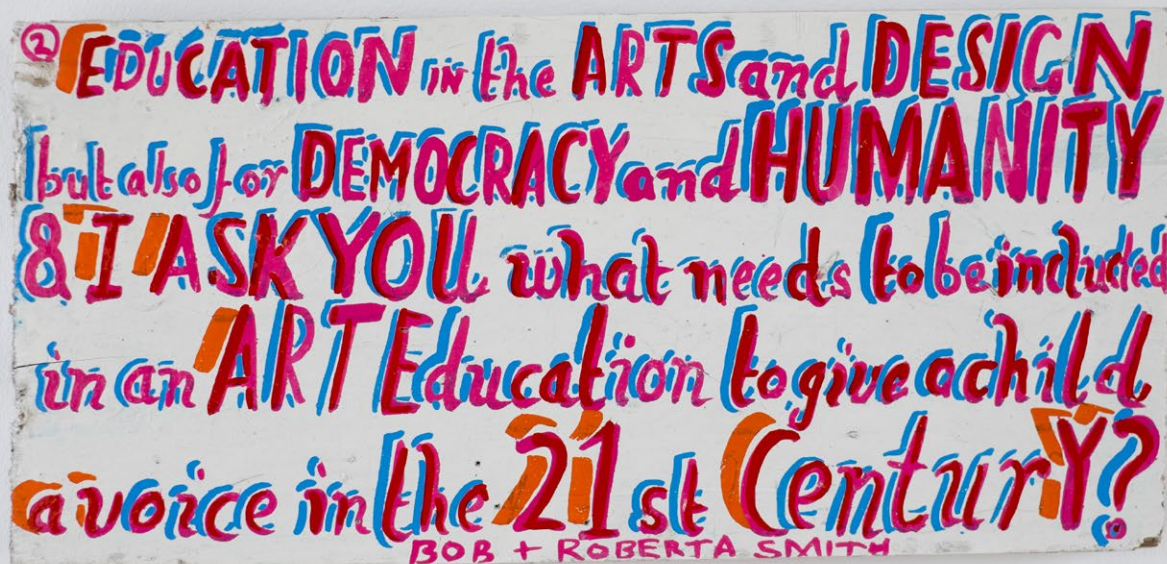 ② EDUCATION in the ARTS and DESIGN
but also for DEMOCRACY and HUMANITY
& I ASK YOU what needs to be included
in an ART Education to give a child
a voice in the 21st CenturY?
BOB + ROBERTA SMITH